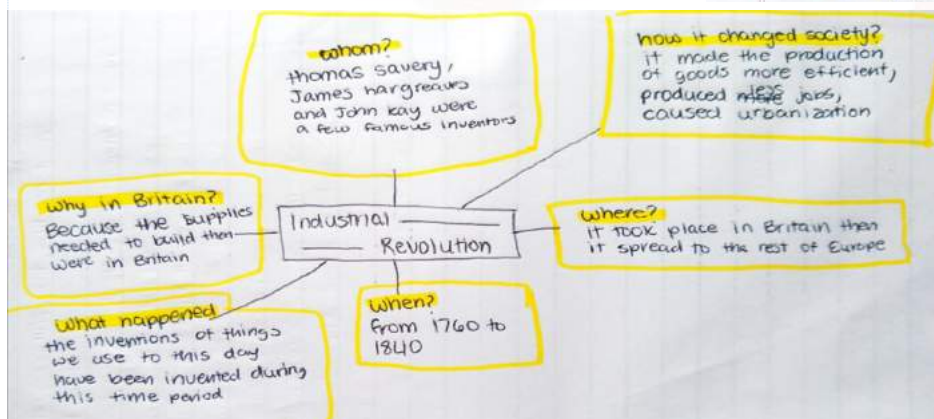 whom?
thomas savery,
James hargreaves
and John kay were
a few famous inventors
how it changed society?
it made the production
of goods more efficient,
produced less jobs,
caused urbanization
why in Britain?
Because the supplies
needed to build then
were in Britain
Industrial
Revolution
where?
it took place in Britain then
it spread to the rest of Europe
what happened
the inventions of things
we use to this day
have been invented during
this time period
when?
from 1760 to
1840